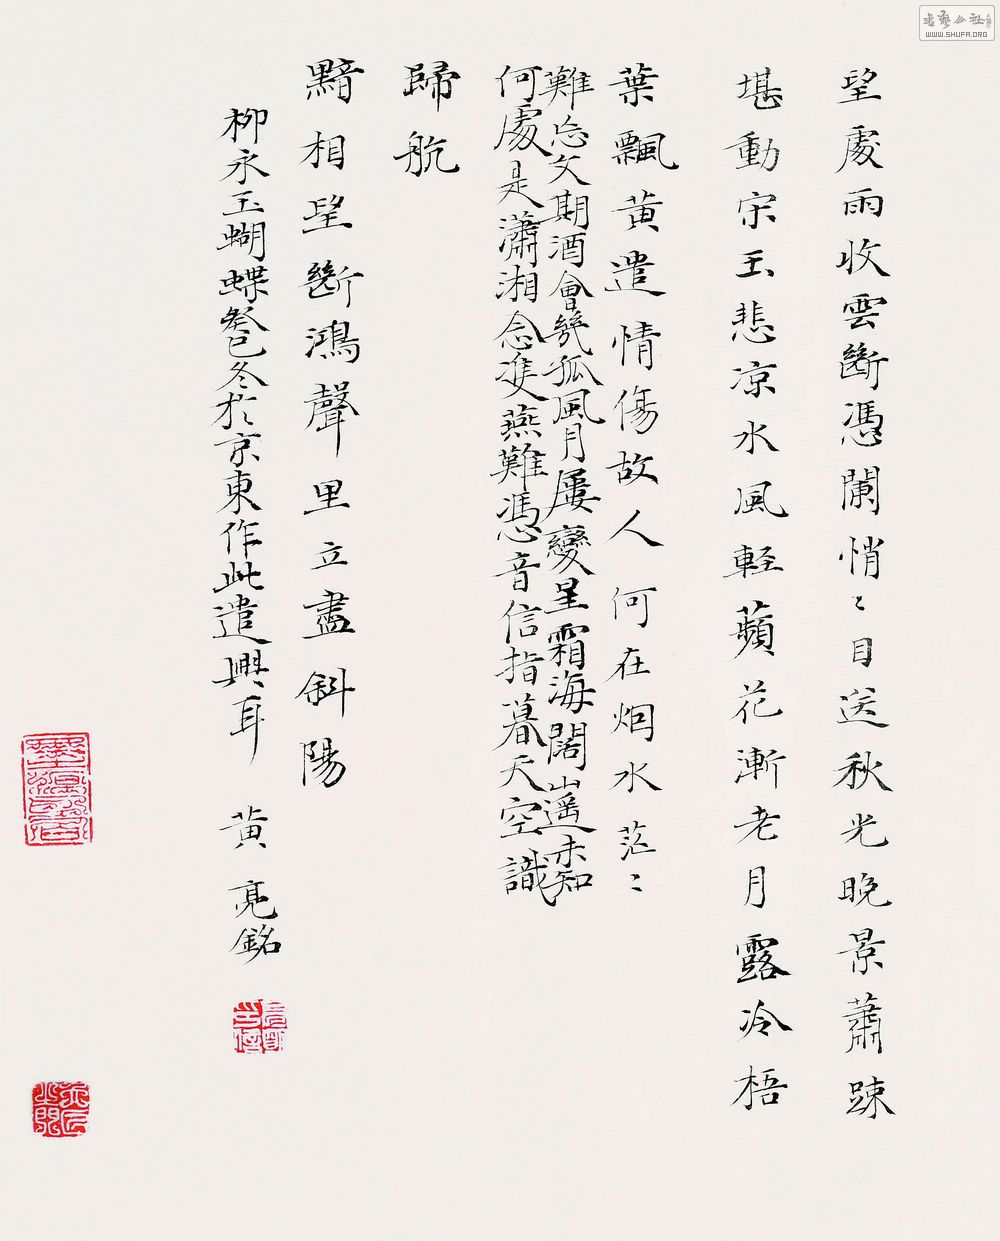 望處雨收雲斷憑闌悄〻目送秋光晚景蕭踈
堪動宋玉悲凉水風輕蘋花漸老月露冷梧
葉飄黃遣情傷故人何在烟水茫〻
難忘文期酒會幾孤風月屢變星霜海闊山遥未知
何處是瀟湘念雙燕難憑音信指暮天空識
歸航
黯相望斷鴻聲里立盡斜陽
柳永玉蝴蝶癸巳冬於京東作此遣興耳 黃亮銘
書藝公社
WWW.SHUFA.ORG